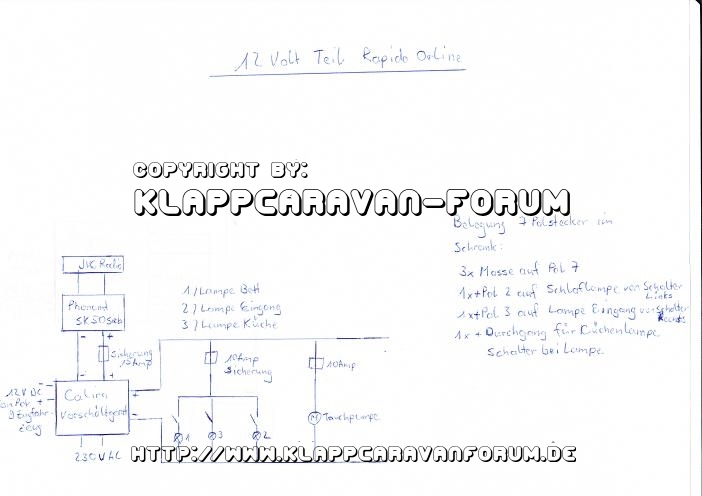 12 Volt Teil Rapido Orline
COPYRIGHT BY:
KLAPPCARAVAN-FORUM
Belegung 7 Polstecker im
Schrank:
3x Masse auf Pol 7
1x+Pol 2 auf Schlaflampe von Schalter
Links
1x+Pol 3 auf Lampe Eingang von Schalter
Rechts
1x + Durchgang für Küchenlampe
Schalter bei Lampe
JVC Radio
1/ Lampe Bett
2/ Lampe Eingang
3/ Lampe Küche
Sicherung
15Amp
10Amp
Sicherung
10Amp
12V DC
Calira
Vorschaltgerät
Zugfahr-
zeug
M
1
3
2
230V AC
HTTP://WWW.KLAPPCARAVANFORUM.DE